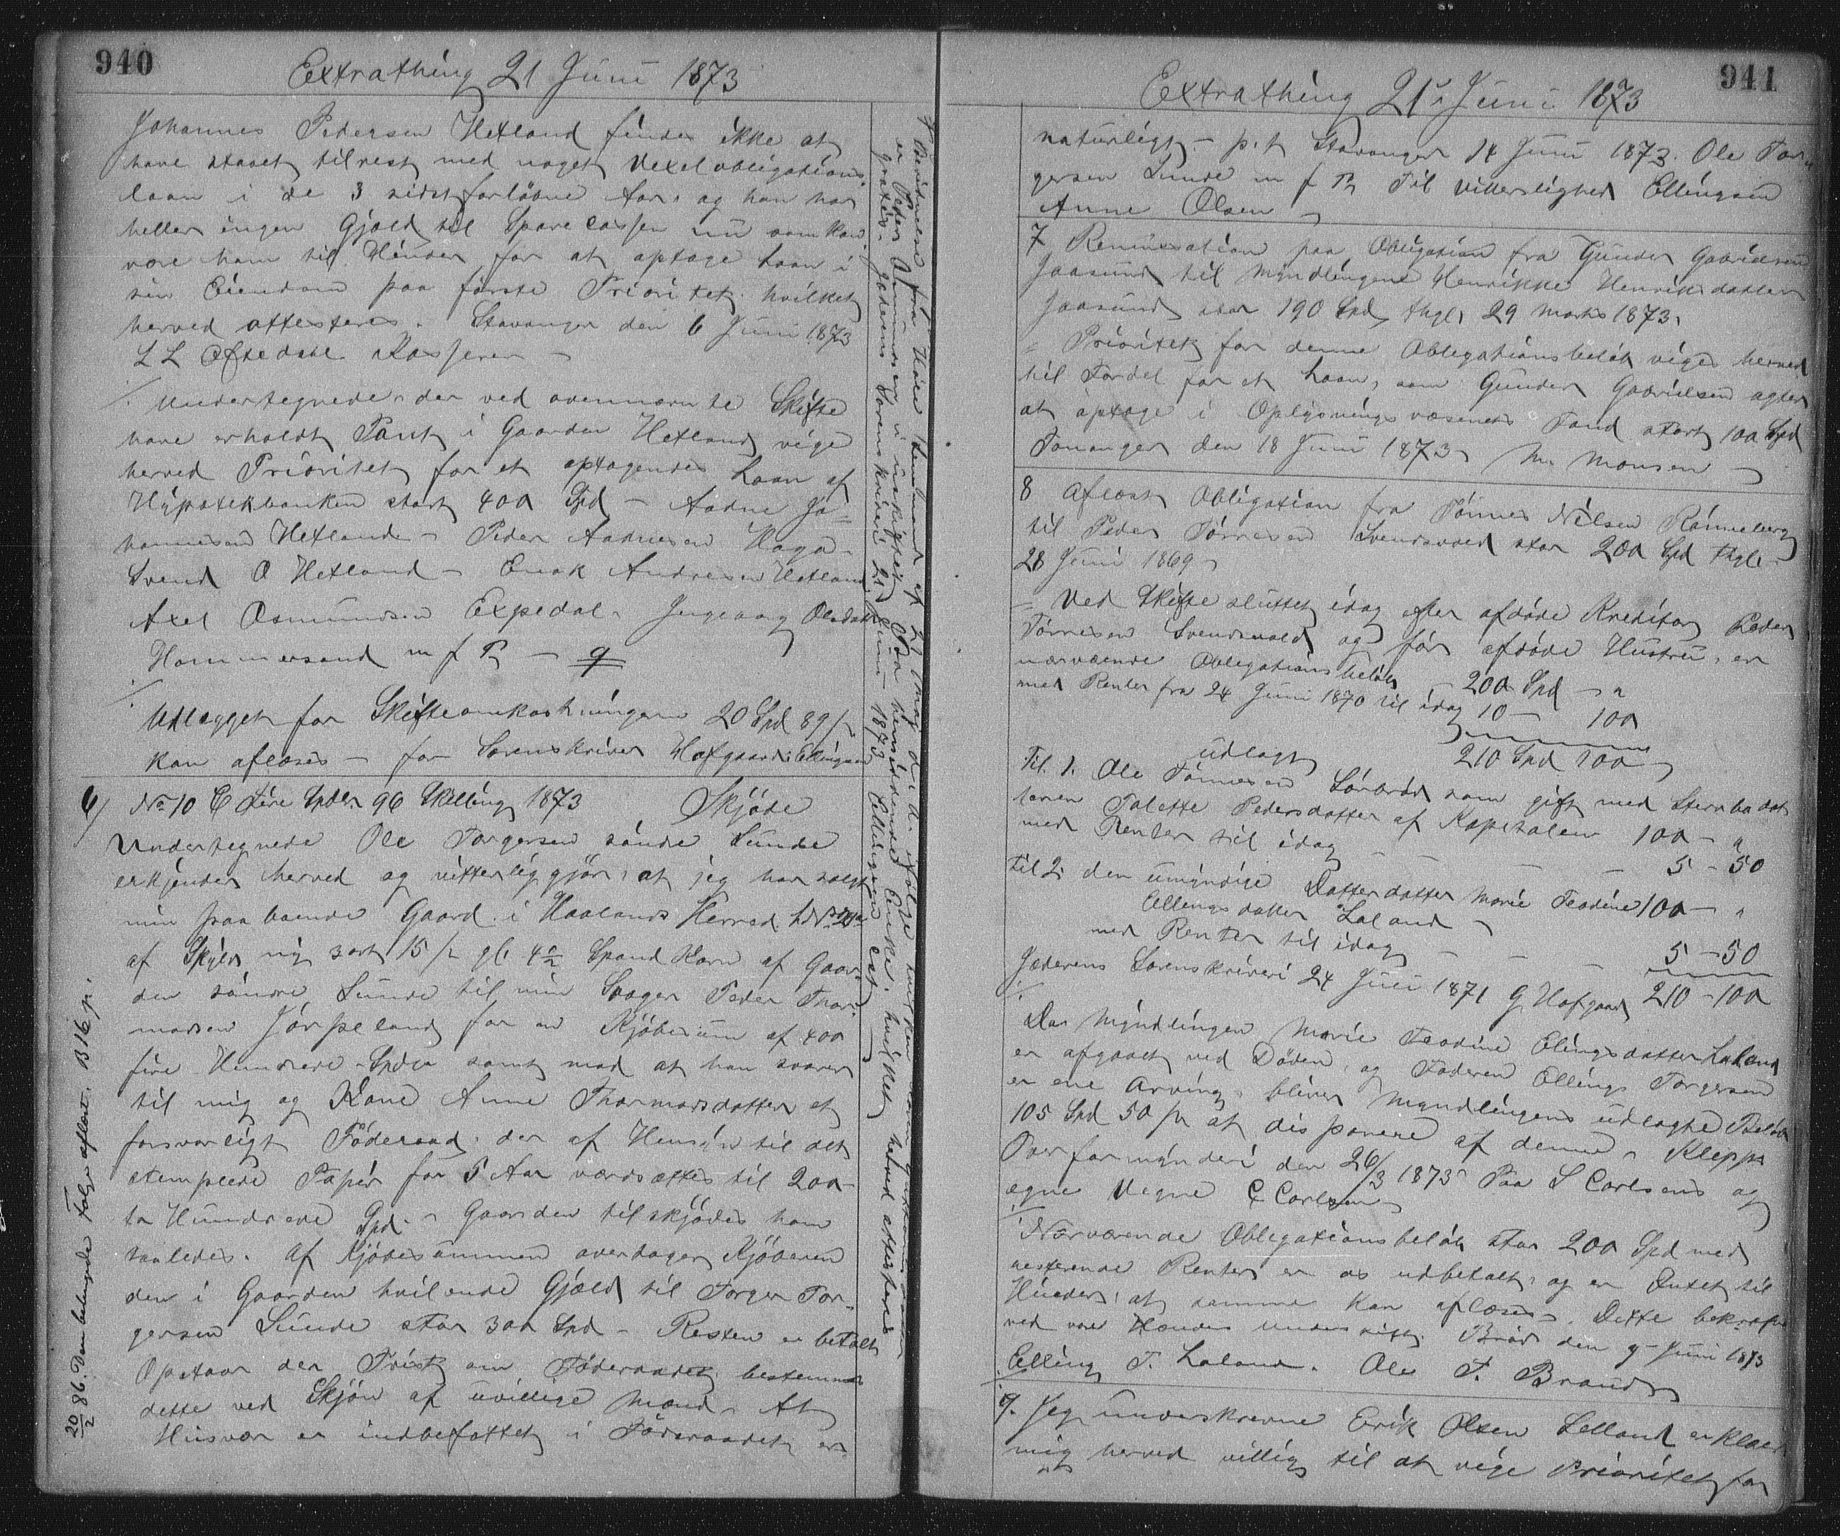 940
Extrathing 21 Juni 1873
Johannes Pedersen Hetland findes ikke at
have staaet tilrest med noget Vexelobligations-
laan i de 3 sidstforløbne Aar, og han har
heller ingen Gjæld til Sparecassen nu som kan
være ham til Hinder for at optage Laan i
sin Eiendom paa første Prioritet hvilket
herved attesteres. Stavanger den 6 Juni 1873
L L Oftedahl Kasserer
Undertegnede, der ved ovennævnte Skifte
have erholdt Pant i Gaarden Hetland vige
herved Prioritet for et optagendes Laan af
Hypothekbanken stort 400 Spd – Aadne Jo=
hannesen Hetland – Peder Aadnesen Haga –
Svend O Hetland – Enok Andresen Hetland
Axel Osmundsen Espedal – Ingeborg Olsdatter
Hommersand m f P –
Udlægget for Skifteomkostningerne 20 Spd 89 s
kan aflæses – for Sorenskriver Hofgaard: Ellingsen
6/ No 10 C Fire Spdlr 96 Skilling 1873 Skjøde
Undertegnede Ole Torgersen søndre Lunde
erkjender herved og vitterliggjør, at jeg har solgt
min paaboende Gaard i Haalands Herred, LNo
af Skyld ny 3 ort 15 s gl. 4½ Spand Korn af Gaar-
den søndre Lunde til min Svoger Peder Thor-
modsen Jørpeland for en Kjøbesum af 400
fire Hundrede Spdlr samt mod at han svarer
til mig og Kone Anne Thormodsdatter et
forsvarligt Føderaad, der af Hensyn til det
stemplede Papir for 5 Aar værdsættes til 200
to Hundrede Spd. – Gaarden tilskjødes ham
saaledes. Af Kjøbesummen overdager Kjøberen
den i Gaarden hvilende Gjæld til Torger Tor-
gersen Lunde stor 300 Spd – Resten er betalt
Opstaar der Tvist om Føderaadet bestemmes
dette ved Skjøn af uvillige Mænd. At
Husvær er indbefattet i Føderaadet er
20/2 86. Den belengede Folge aflæst. B 16 p.
941
Extrathing 21 Juni 1873
naturligt – p.t. Stavanger 14 Juni 1873. Ole Tor-
gersen Lunde m f P Til Vitterlighed Ellingsen
Anne Olsen
7 Renunsation paa Obligation fra Gunder Gabrielsen
Jaasund til Myndlingen Henrikke Henriksdatter
Jaasund stor 190 Spd, thgl. 29 Marts 1873.
Prioritet for denne Obligationsbeløb viges herved
til Fordel for et Laan, som Gunder Gabrielsen agter
at optage i Oplysningsvæsenets Fond stort 100 Spd
Tananger den 18 Juni 1873 M. Monsen
8 Aflæst Obligation fra Tønnes Nilsen Rønneberg
til Peder Tørresen Svendsvold stor 200 Spd thgl.
28 Juni 1869
Ved Skifte sluttet idag efter afdøde Kreditor Peder
Tørresen Svendsvold og før afdøde Hustru, er
nærværende Obligationsbeløb – 200 Spd – "
med Renter fra 24 Juni 1870 til idag 10 – 100
210 Spd 100
udlagt
Til 1. Ole Tønnesen Sørbrød som gift med Sterfbodat-
teren Talette Pedersdatter af Kapitalen 100 – "
med Renter til idag – 5 – 50
til 2. den umyndige Datterdatter Marie Teodine 100 – "
Ellingsdatter Laland
med Renter til idag – 5 – 50
Jæderens Sorenskriveri 24 Juni 1871 G Hofgaard 210 – 100
Da Myndlingen Marie Teodine Elingsdatter Laland
er afgaaet ved Døden, og Faderen Ellings Torgersen
er ene Arving, bliver Myndlingens udlagte Beløb
105 Spd 50 s at disponere af denne. Klepps
Overformynderi den 26/3 1873 Paa S Carlsens og
egne Vegne C Carlsen
Nærværende Obligationsbeløb stor 200 Spd med
resterende Renter er os udbetalt, og er Intet til
Hinder, at samme kan aflæses. Dette bekræfte
ved vore Hænders underskrift. Brød den 9 Juni 1873
Elling T. Laland. Ole T. Brød
9. Jeg underskrevne Erik Olsen Lelland erklærer
mig herved villig til at vige Prioritet for